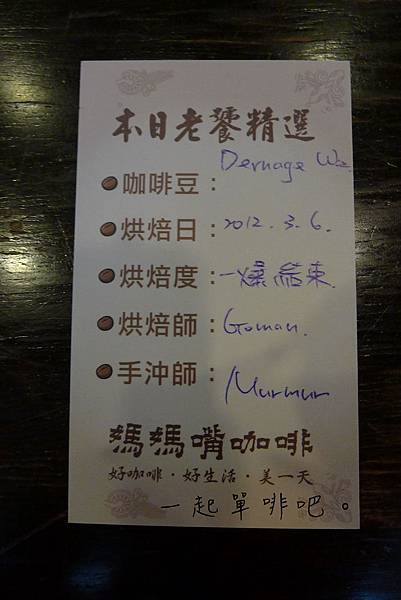 本日老饕精選
咖啡豆：Dernage Wa
烘焙日：2012.3.6.
烘焙度：一爆結束.
烘焙師：Goman.
手沖師：Murmur
媽媽嘴咖啡
好咖啡・好生活・美一天
一起單啡吧。